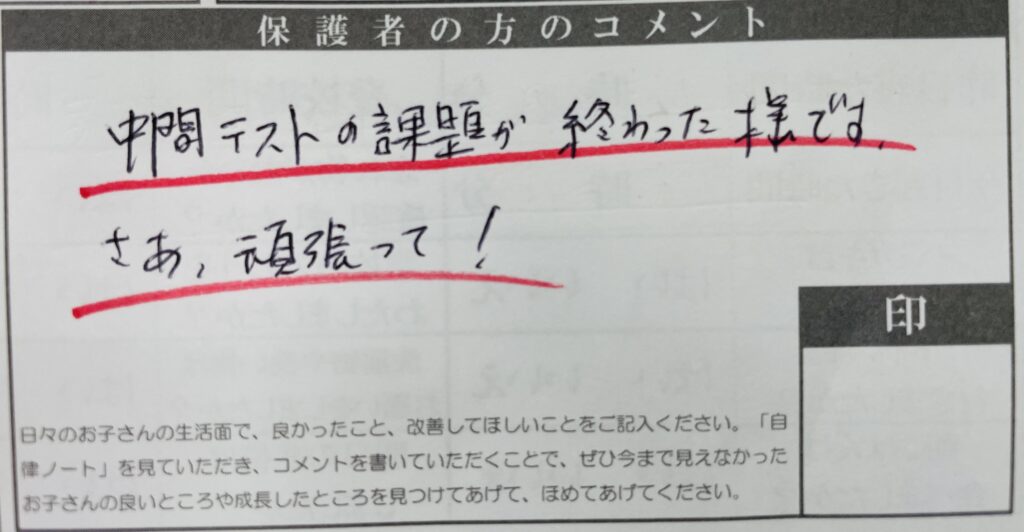 保護者の方のコメント
中間テストの課題が 終わった様です.
さあ, 頑張って!
印
日々のお子さんの生活面で、良かったこと、改善してほしいことをご記入ください。「自
律ノート」を見ていただき、コメントを書いていただくことで、ぜひ今まで見えなかった
お子さんの良いところや成長したところを見つけてあげて、ほめてあげてください。